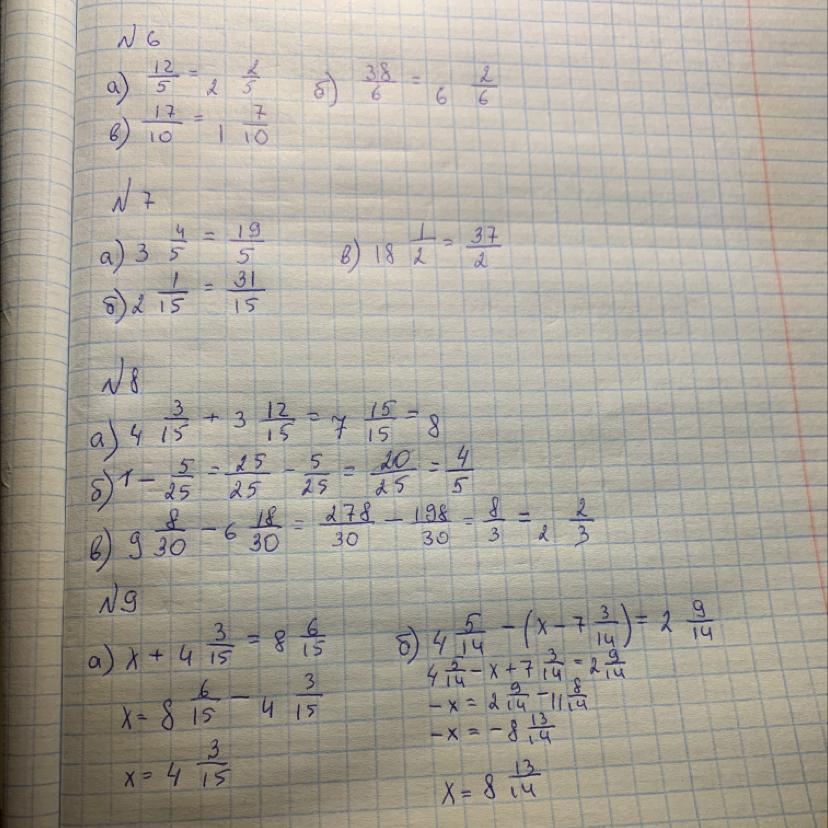 № 6
а) 12/5 = 2 2/5 б) 38/6 = 6 2/6
в) 17/10 = 1 7/10
№ 7
а) 3 4/5 = 19/5 в) 18 1/2 = 37/2
б) 2 1/15 = 31/15
№ 8
а) 4 3/15 + 3 12/15 = 7 15/15 = 8
б) 1 - 5/25 = 25/25 - 5/25 = 20/25 = 4/5
в) 9 8/30 - 6 18/30 = 278/30 - 198/30 = 8/3 = 2 2/3
№ 9
а) x + 4 3/15 = 8 6/15
x = 8 6/15 - 4 3/15
x = 4 3/15
б) 4 5/14 - (x - 7 3/14) = 2 9/14
4 5/14 - x + 7 3/14 = 2 9/14
-x = 2 9/14 - 11 8/14
-x = -8 13/14
x = 8 13/14